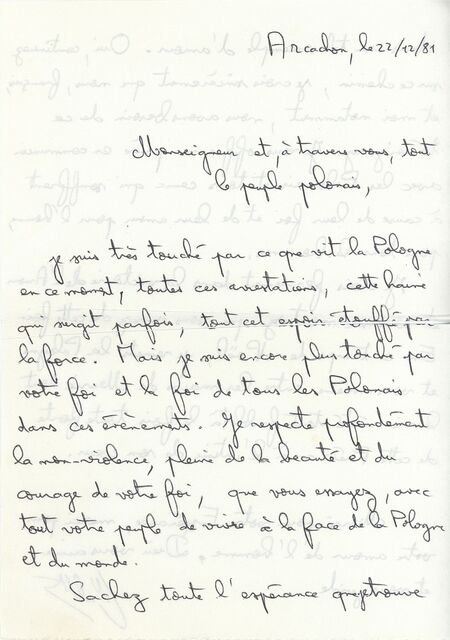 Arcachon, le 22/12/81
Monseigneur et, à travers vous, tout
le peuple polonais,
je suis très touché par ce que vit la Pologne
en ce moment, toutes ces arrestations, cette haine
qui surgit parfois, tout cet espoir étouffé par
la force. Mais je suis encore plus touché par
votre foi et la foi de tous les Polonais
dans ces évènements. Je respecte profondément
la non-violence, pleine de la beauté et du
courage de votre foi, que vous essayez, avec
tout votre peuple de vivre à la face de la Pologne
et du monde.
Sachez toute l'espérance que je trouve